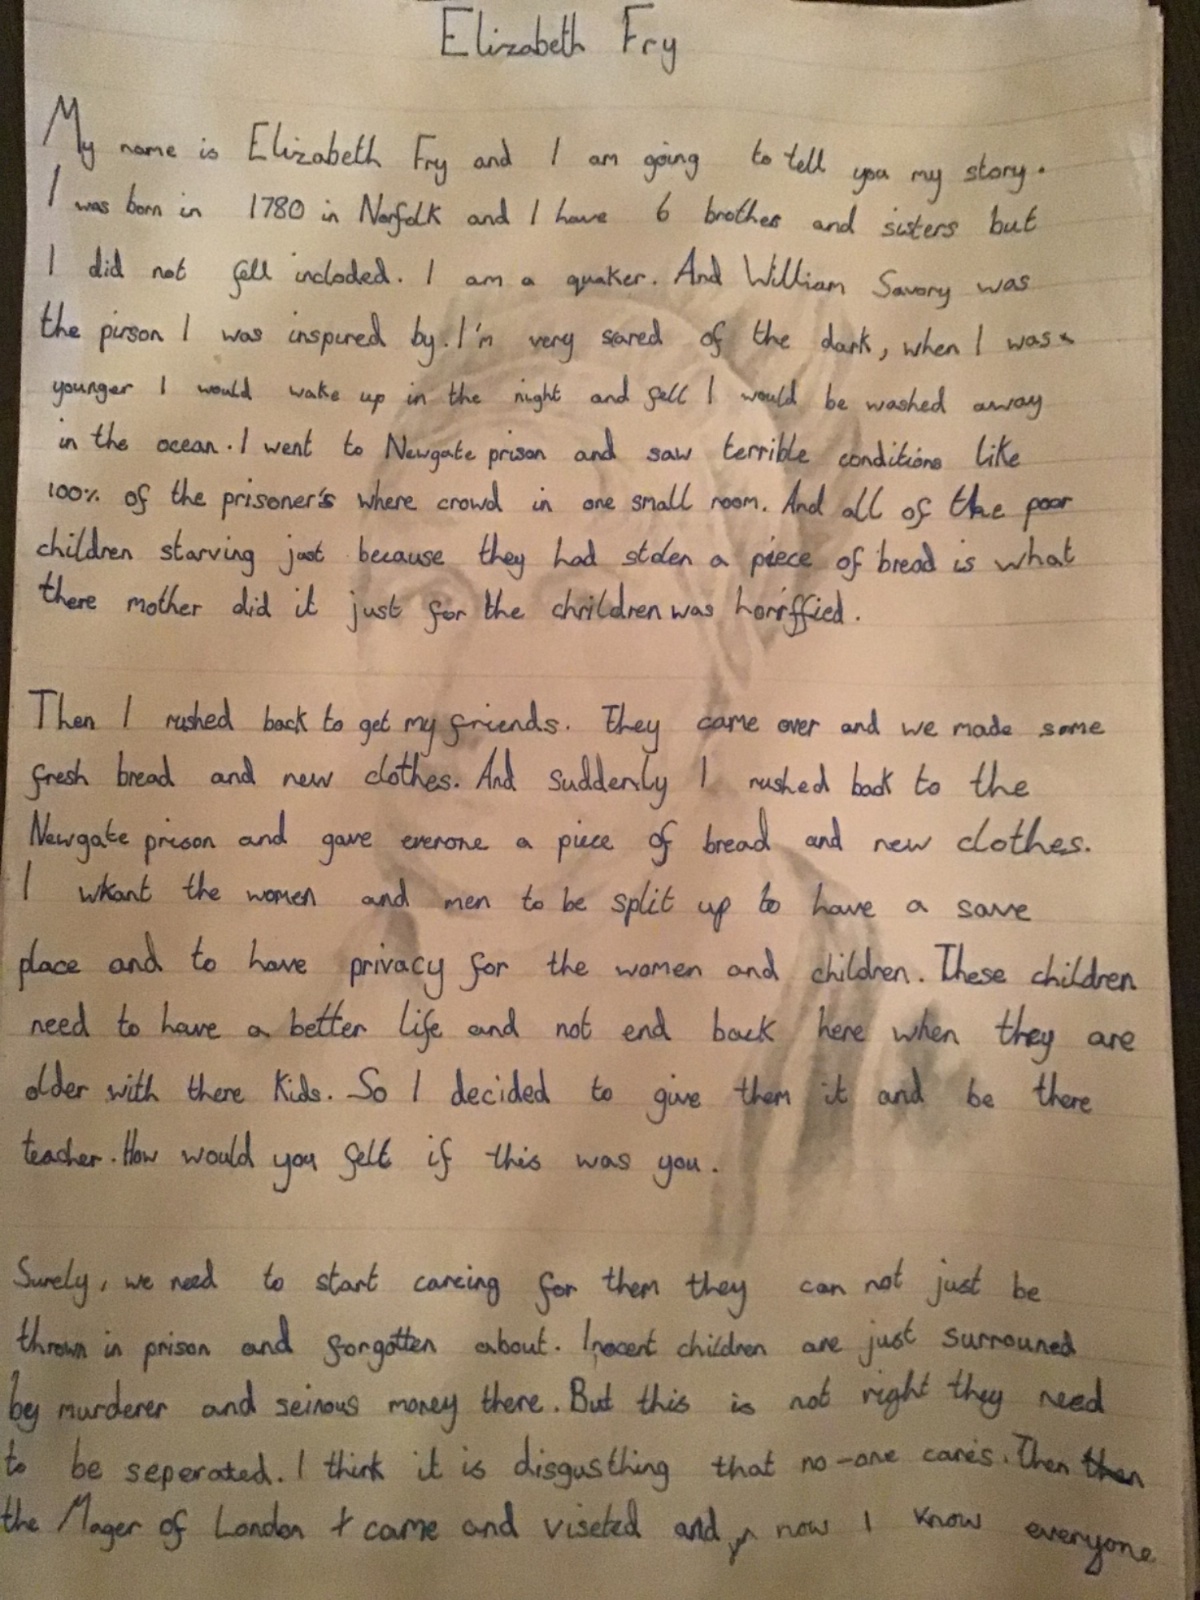 Elizabeth Fry
My name is Elizabeth Fry and I am going to tell you my story.
I was born in 1780 in Norfolk and I have 6 brothes and sisters but
I did not fell incloded. I am a quaker. And William Savory was
the pirson I was inspired by. I'm very scared of the dark, when I was
younger I would wake up in the night and fell I would be washed away
in the ocean. I went to Newgate prison and saw terrible conditions like
100% of the prisoner's where crowd in one small room. And all of the poor
children starving just because they had stolen a piece of bread is what
there mother did it just for the chrildren was horriffied.
Then I rushed back to get my friends. They came over and we made some
fresh bread and new clothes. And suddenly I rushed back to the
Newgate prison and gave everone a piece of bread and new clothes.
I wkant the women and men to be split up to have a save
place and to have privacy for the women and children. These children
need to have a better life and not end back here when they are
older with there kids. So I decided to give them it and be there
teacher. How would you felt if this was you.
Surely, we need to start careing for them they can not just be
thrown in prison and forgotten about. Inocent children are just surrouned
by murderer and seirous money there. But this is not right they need
to be seperated. I think it is disgusthing that no-one cares. Then then
the Mager of London + came and viseted and now I know everyone